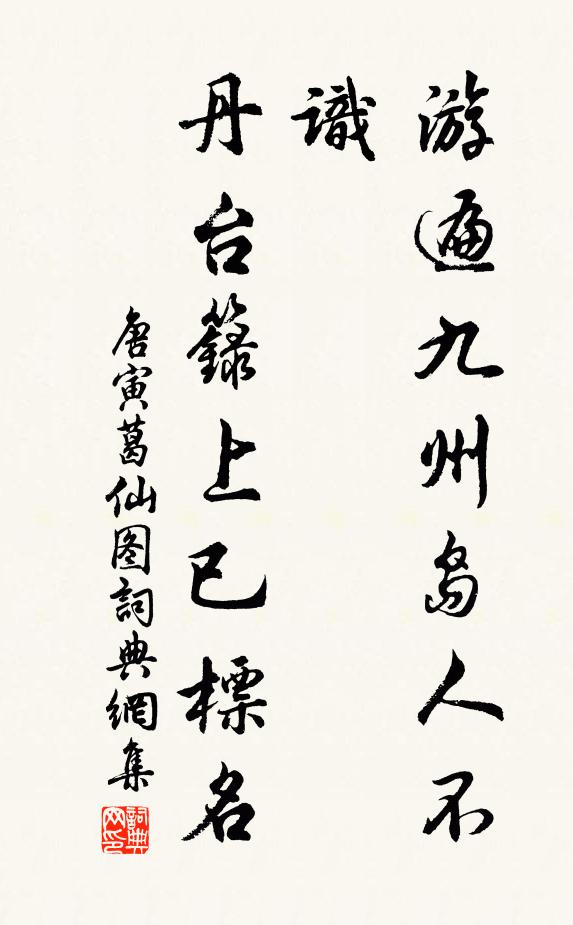 游遍九州島人不
識
丹台籙上已標名
唐寅葛仙图詞典網集
詞典
网印